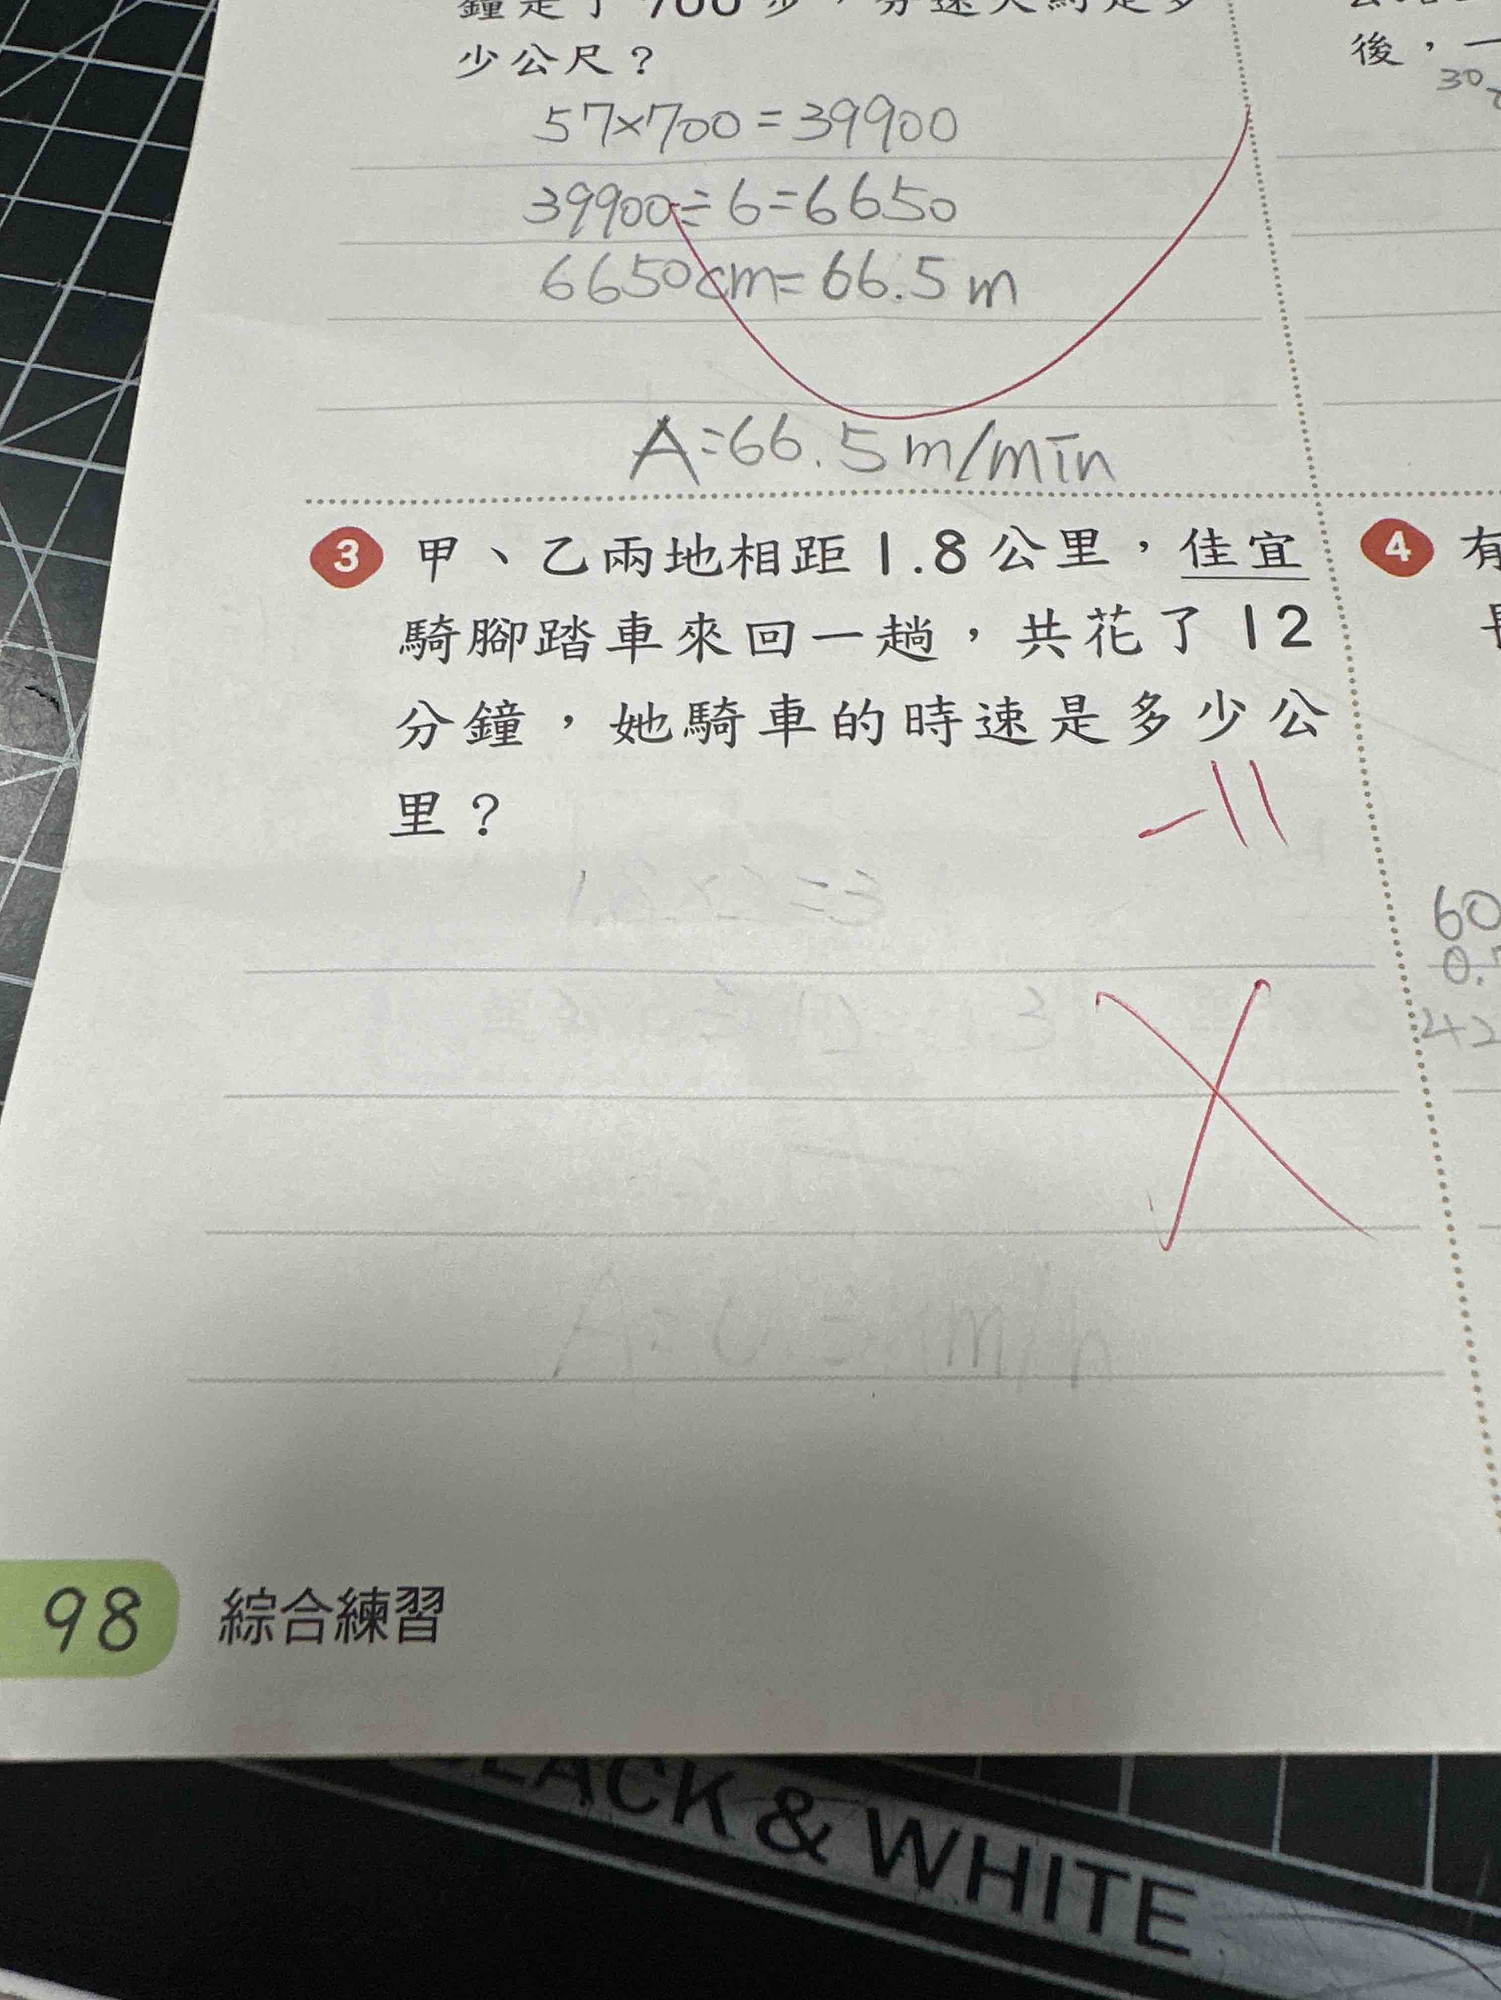 700步，分速大約是多
少公尺？
57×700=39900
39900÷6=6650
6650cm=66.5m
A=66.5m/min
後，一
30
3 甲、乙兩地相距1.8公里，佳宜
騎腳踏車來回一趟，共花了12
分鐘，她騎車的時速是多少公
里？
-11
4 有
60
0.
42
98 綜合練習
BLACK & WHITE